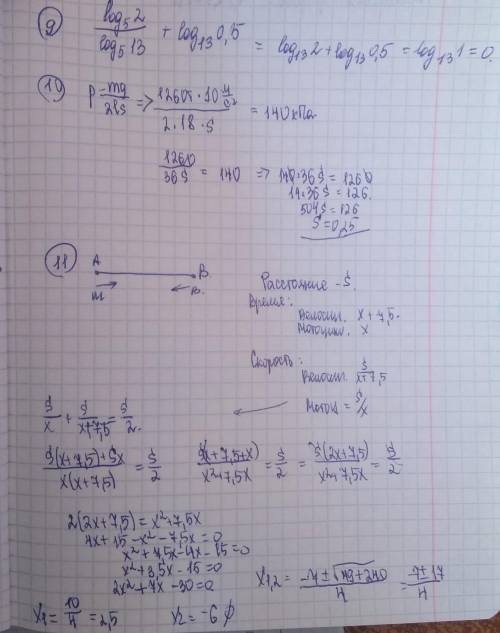 9) log₅2 / log₅13 + log₁₃0,5 = log₁₃2 + log₁₃0,5 = log₁₃1 = 0.
10) p = mg / 2ls => 1260т·10 м/с² / 2·18·s = 140кПа
1260 / 36s = 140 => 140·36s = 1260
14·36s = 126.
504s = 126
s = 0,25
11) A B
m в.
Расстояние - S.
Время:
Велосип. x + 7,5.
Мотоцикл. x
Скорость:
Велосип. S / x+7,5
Мотоц = S/x
S/x + S/x+7,5 = S/2.
S(x+7,5)+Sx / x(x+7,5) = S/2 S(x+7,5+x) / x²+7,5x = S/2 = S(2x+7,5) / x²+7,5x = S/2
2(2x+7,5) = x²+7,5x
4x+15-x²-7,5x=0
x²+7,5x-4x-15=0
x²+3,5x-15=0
2x²+7x-30=0
x₁,₂ = -7±√49+240 / 4 = -7±17 / 4
x₁ = 10/4 = 2,5 x₂ = -6 ∅